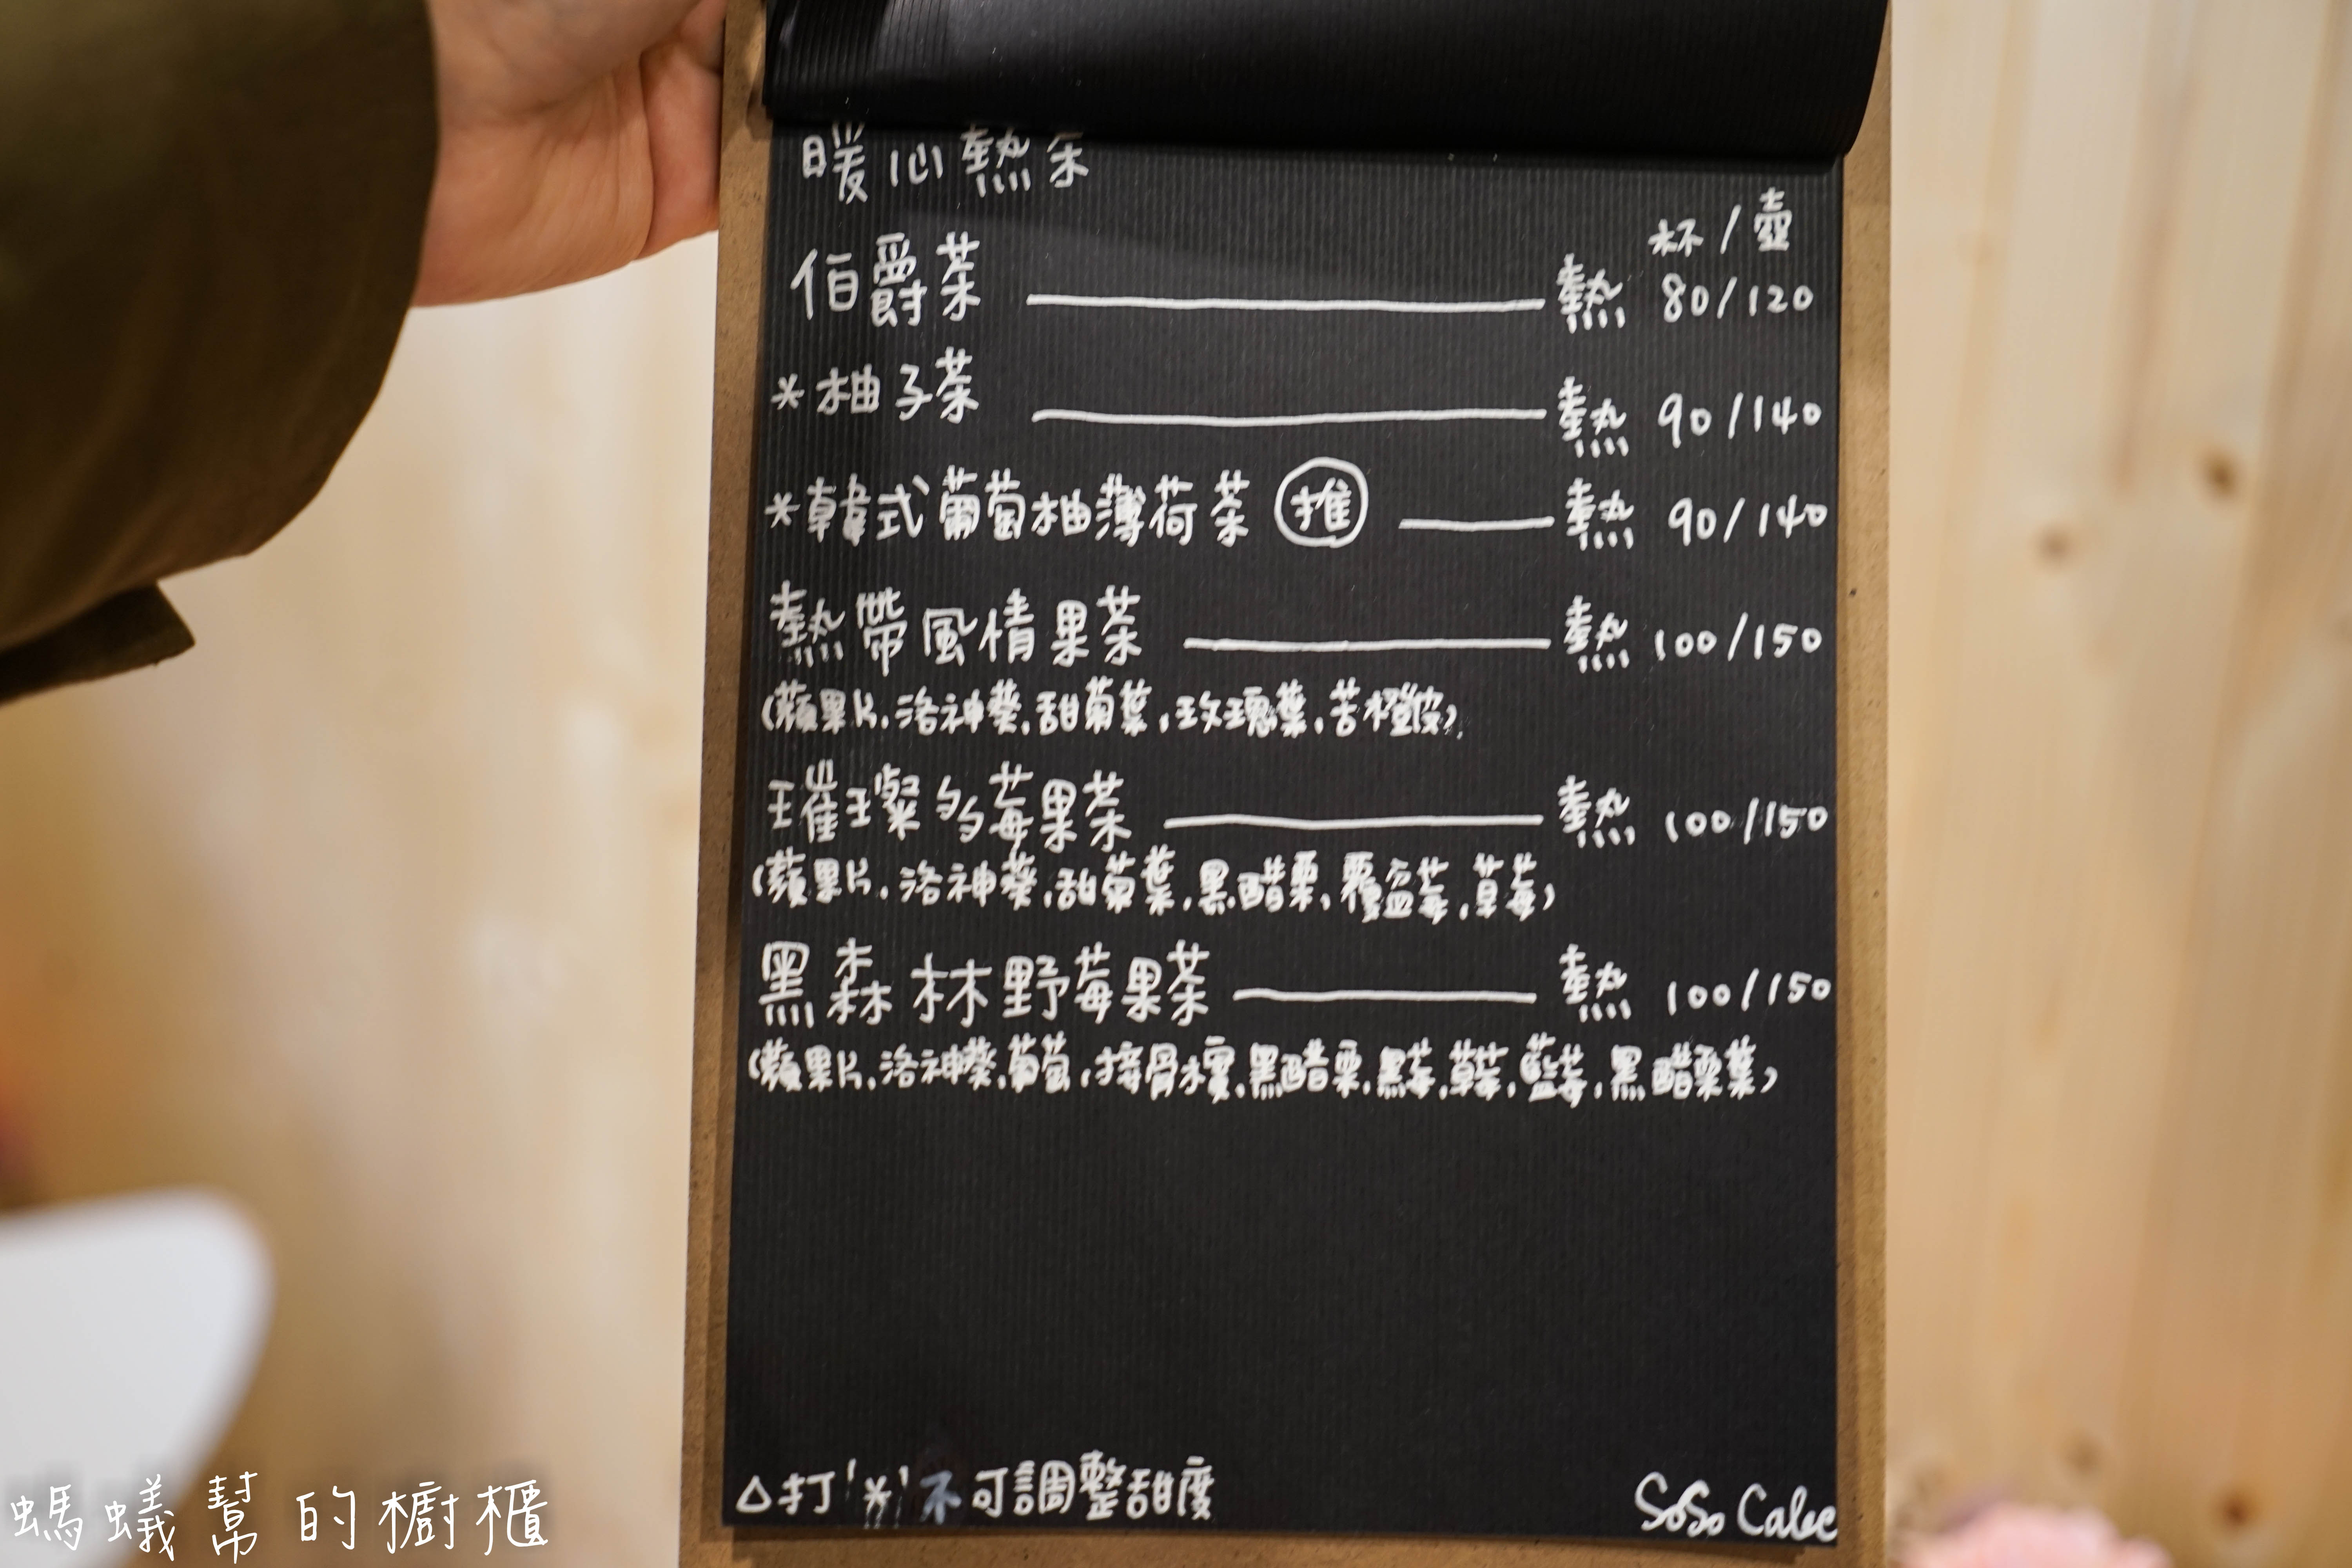 暖心熱茶
杯/壺
伯爵茶 熱 80/120
*柚子茶 熱 90/140
*韓式葡萄柚薄荷茶 推 熱 90/140
熱帶風情果茶 熱 100/150
(蘋果片,洛神葵,甜菊葉,玫瑰葉,苦橙皮)
璀璨多莓果茶 熱 100/150
(蘋果片,洛神葵,甜菊葉,黑醋栗,覆盆莓,草莓)
黑森林野莓果茶 熱 100/150
(蘋果片,洛神葵,葡萄,接骨木實,黑醋栗,黑莓,草莓,藍莓,黑醋栗葉)
△打'*'不可調整甜度
SoSo Cake
螞蟻幫的櫥櫃